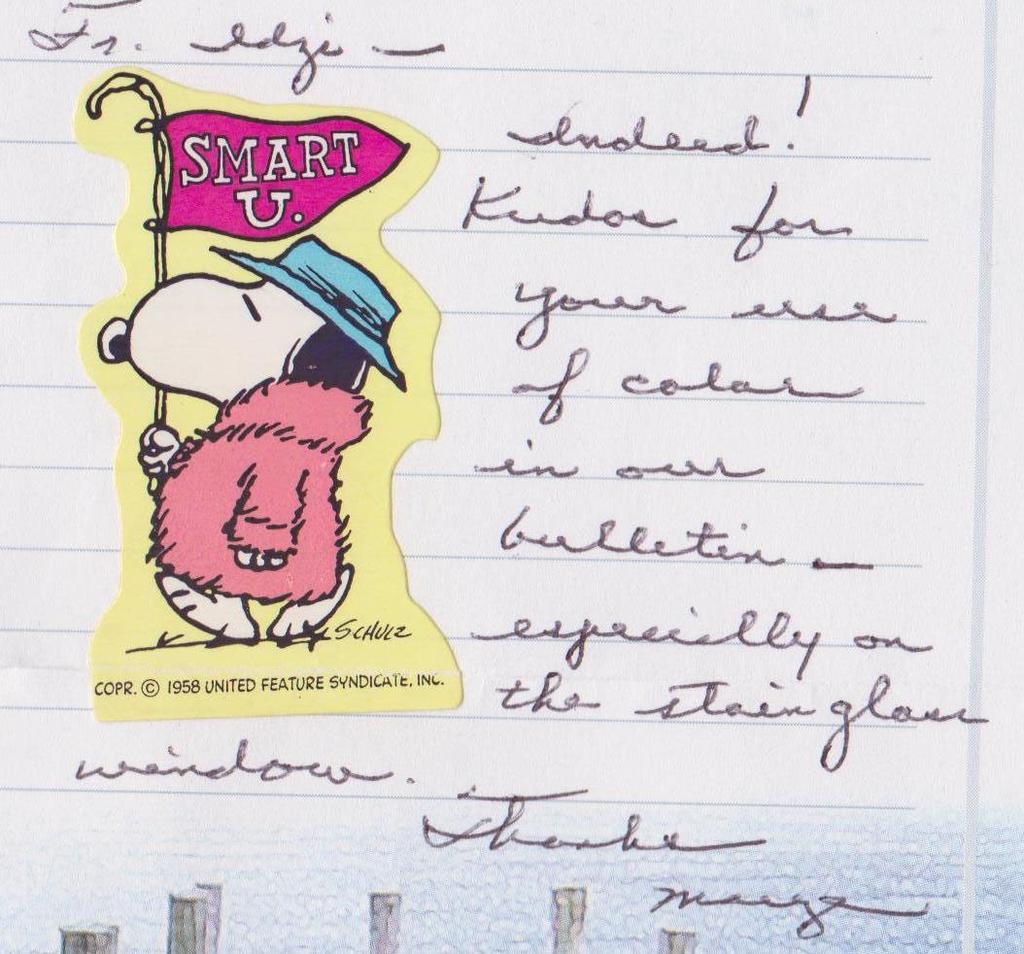 Fr. Edzi —
SMART
U.
Indeed!
Kudos for
your use
of color
in our
bulletin —
especially on
the stain glass
window.
SCHULZ
COPR. © 1958 UNITED FEATURE SYNDICATE, INC.
Thanks
Marge